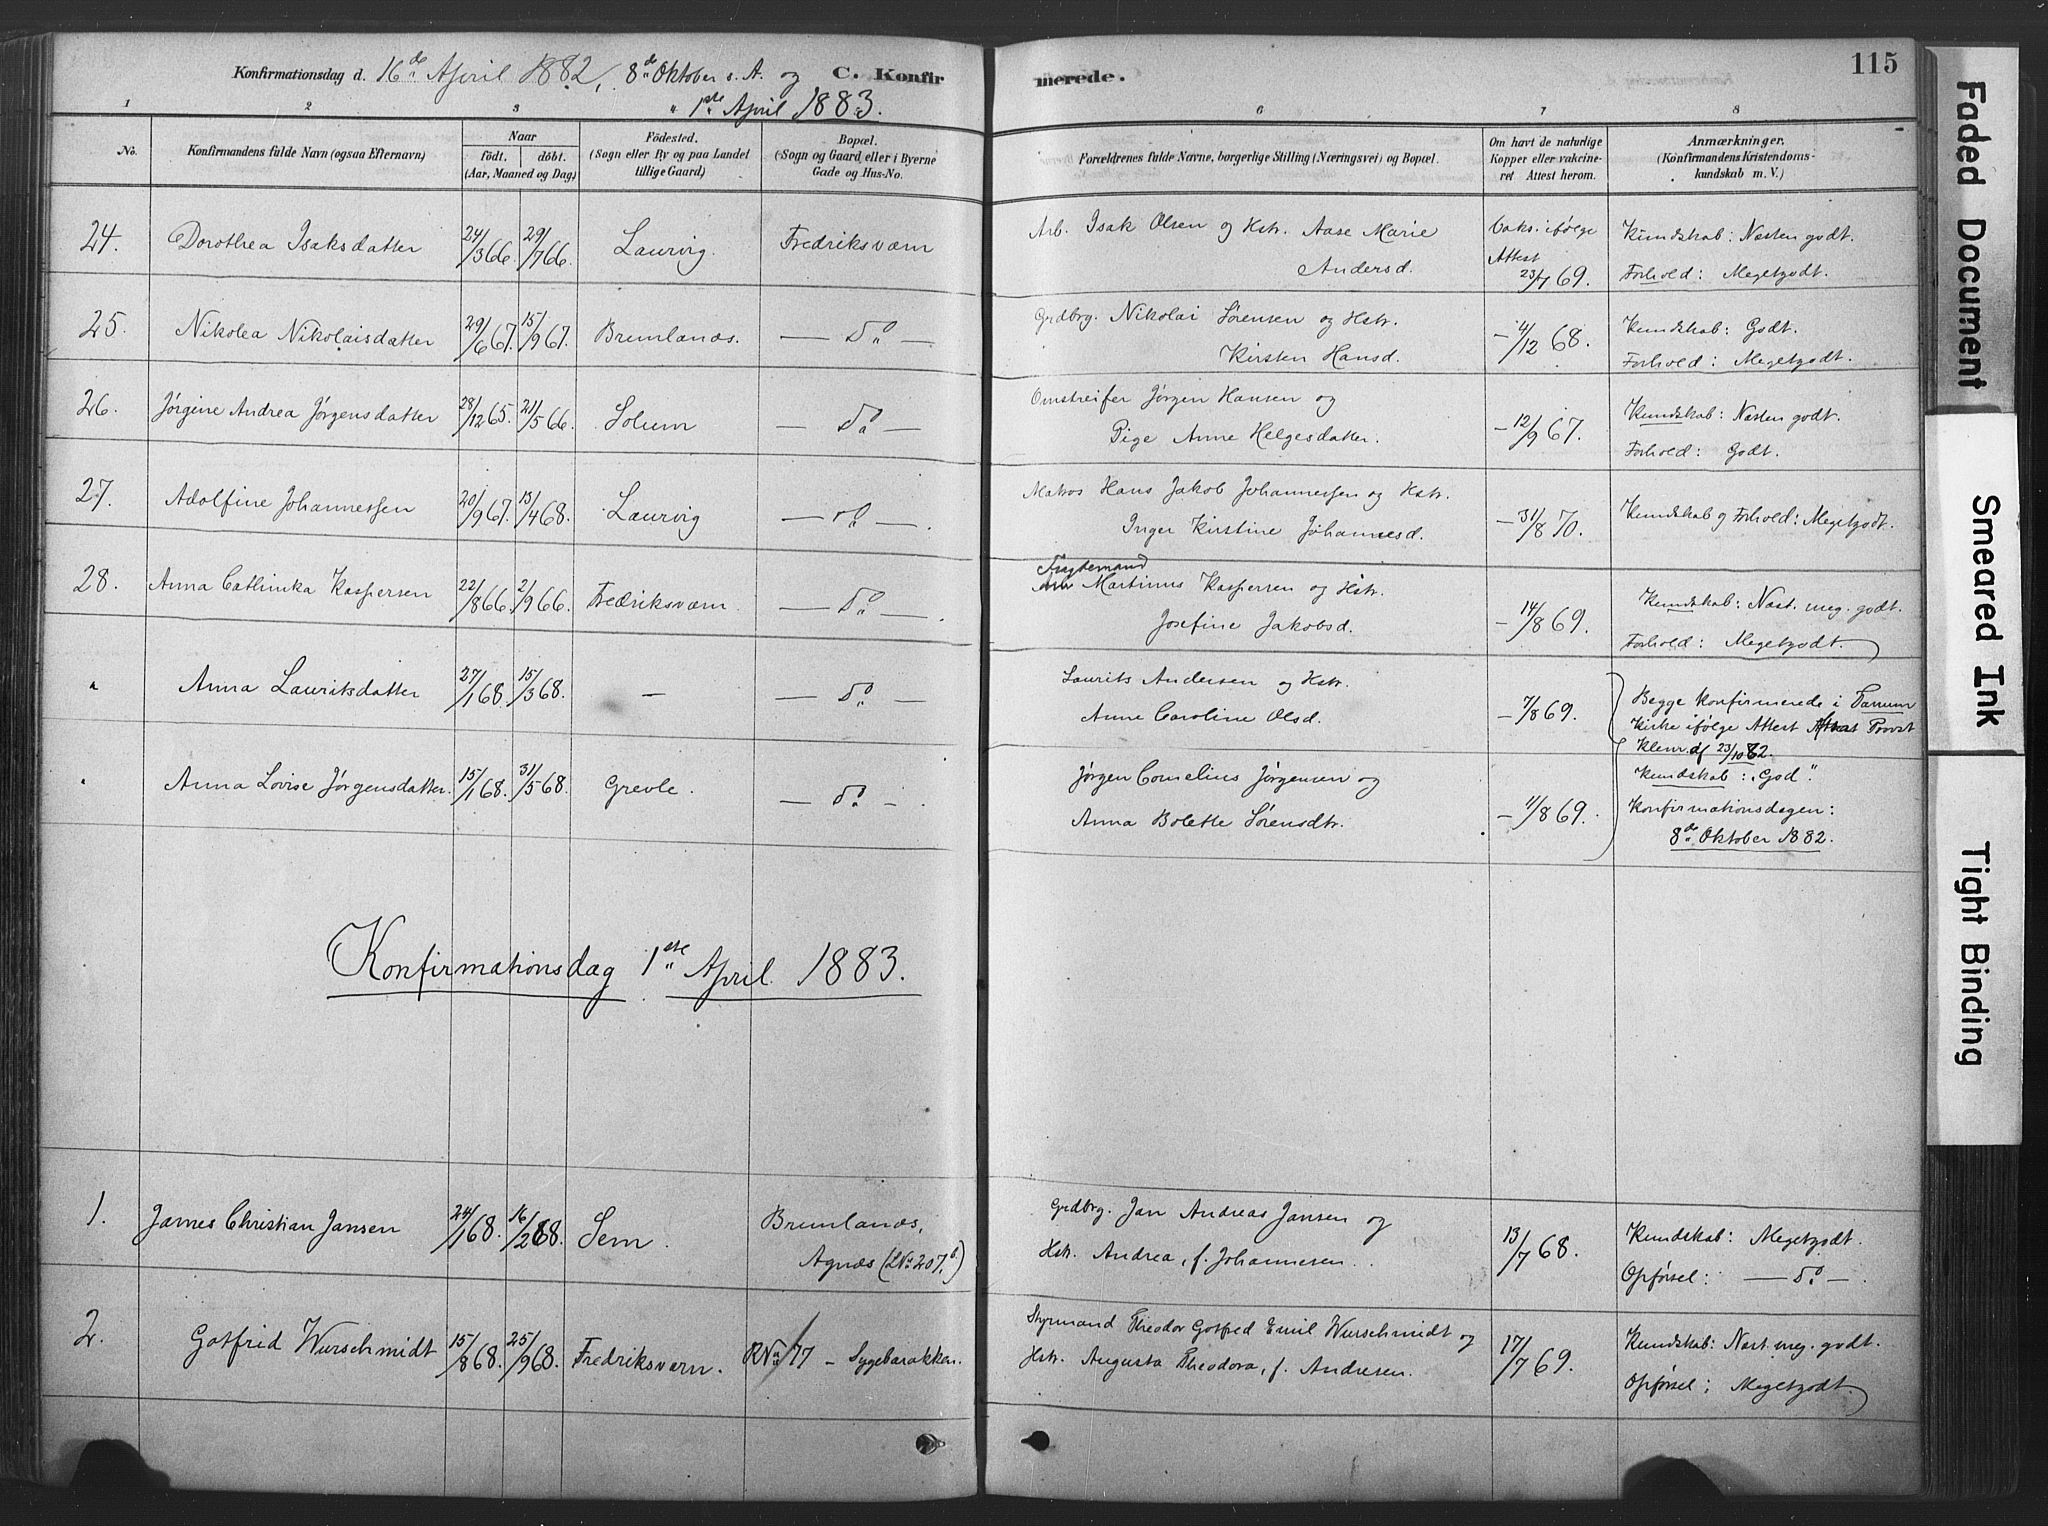 115
Konfirmationsdag d. 16de April 1882, 8de Oktober s. A. og C. Konfirmerede.
1ste April 1883.
1 2 3 4 6 7 8
No.
Konfirmandens fulde Navn (ogsaa Efternavn)
Naar
født. døbt.
(Aar, Maaned og Dag)
Fødested.
(Sogn eller By og paa Landet
tillige Gaard)
Bopæl.
(Sogn og Gaard, eller i Byerne
Gade og Hus-No.
Forældrenes fulde Navne, borgerlige Stilling (Næringsvei) og Bopæl.
Om havt de naturlige
Kopper eller vakcine-
ret Attest herom.
Anmærkninger.
(Konfirmandens Kristendoms-
kundskab m. V.)
24. Dorothea Isaksdatter 24/3 66. 29/7 66. Laurvig. Fredriksværn Arb. Isak Olsen og Hstr. Aase Marie
Andersd. Vaks. ifølge
Attest
23/7 69. Kundskab: Næsten godt.
Forhold: Megetgodt.
25. Nikolea Nikolaisdatter 29/6 67. 15/9 67. Brunlanæs. — Do — Grdbrg. Nikolai Sørensen og Hstr.
Kirsten Hansd. — 4/12 68. Kundskab: Godt.
Forhold: Megetgodt.
26. Jørgine Andrea Jørgensdatter 28/12 65. 21/5 66. Solum — Do — Omstreifer Jørgen Hansen og
Pige Anne Helgesdatter. — 12/9 67. Kundskab: Næsten godt.
Forhold: Godt.
27. Adolfine Johannessen 20/9 67. 13/4 68. Laurvig — do — Matros Hans Jakob Johannessen og Hstr.
Inger Kirstine Johannesd. — 31/8 70. Kundskab og Forhold: Megetgodt.
28. Anna Cathinka Kaspersen 22/8 66. 2/9 66. Fredriksværn. — Do — Fragtemand
Martinus Kaspersen og Hstr.
Josefine Jakobsd. — 14/8 69. Kundskab: Næst. meg. godt.
Forhold: Megetgodt.
" Anna Lauritsdatter 27/1 68. 15/3 68. — — Do — Laurits Andersen og Hstr.
Anne Caroline Olsd. — 7/8 69. Begge konfirmerede i Tanum
Kirke ifølge Attest Provst
df 23/10 82.
" Anna Lovise Jørgensdatter. 15/1 68. 31/5 68. Grevle. — do — Jørgen Cornelius Jørgensen og
Anna Bolette Sørensdtr. — 11/8 69. Kundskab: „God".
Konfirmationsdagen:
8de Oktober 1882.
Konfirmationsdag 1ste April 1883.
1. James Christian Jansen 24/1 68. 16/2 68. Sem. Brunlanæs,
Agnæs (LNo 207b) Grdbrg. Jan Andreas Jansen og
Hstr. Andrea, f. Johannesen. 13/7 68. Kundskab: Megetgodt.
Opførsel: — Do —.
2. Gotfrid Wurschmidt 15/8 68. 25/9 68. Fredriksværn. RNo 77 – Sygebarakken. Styrmand Theodor Gotfred Emil Wurschmidt og
Hstr. Augusta Theodora, f. Andresen. 17/7 69. Kundskab: Næst. meg. godt.
Opførsel: Megetgodt.
Faded Document
Smeared Ink
Tight Binding